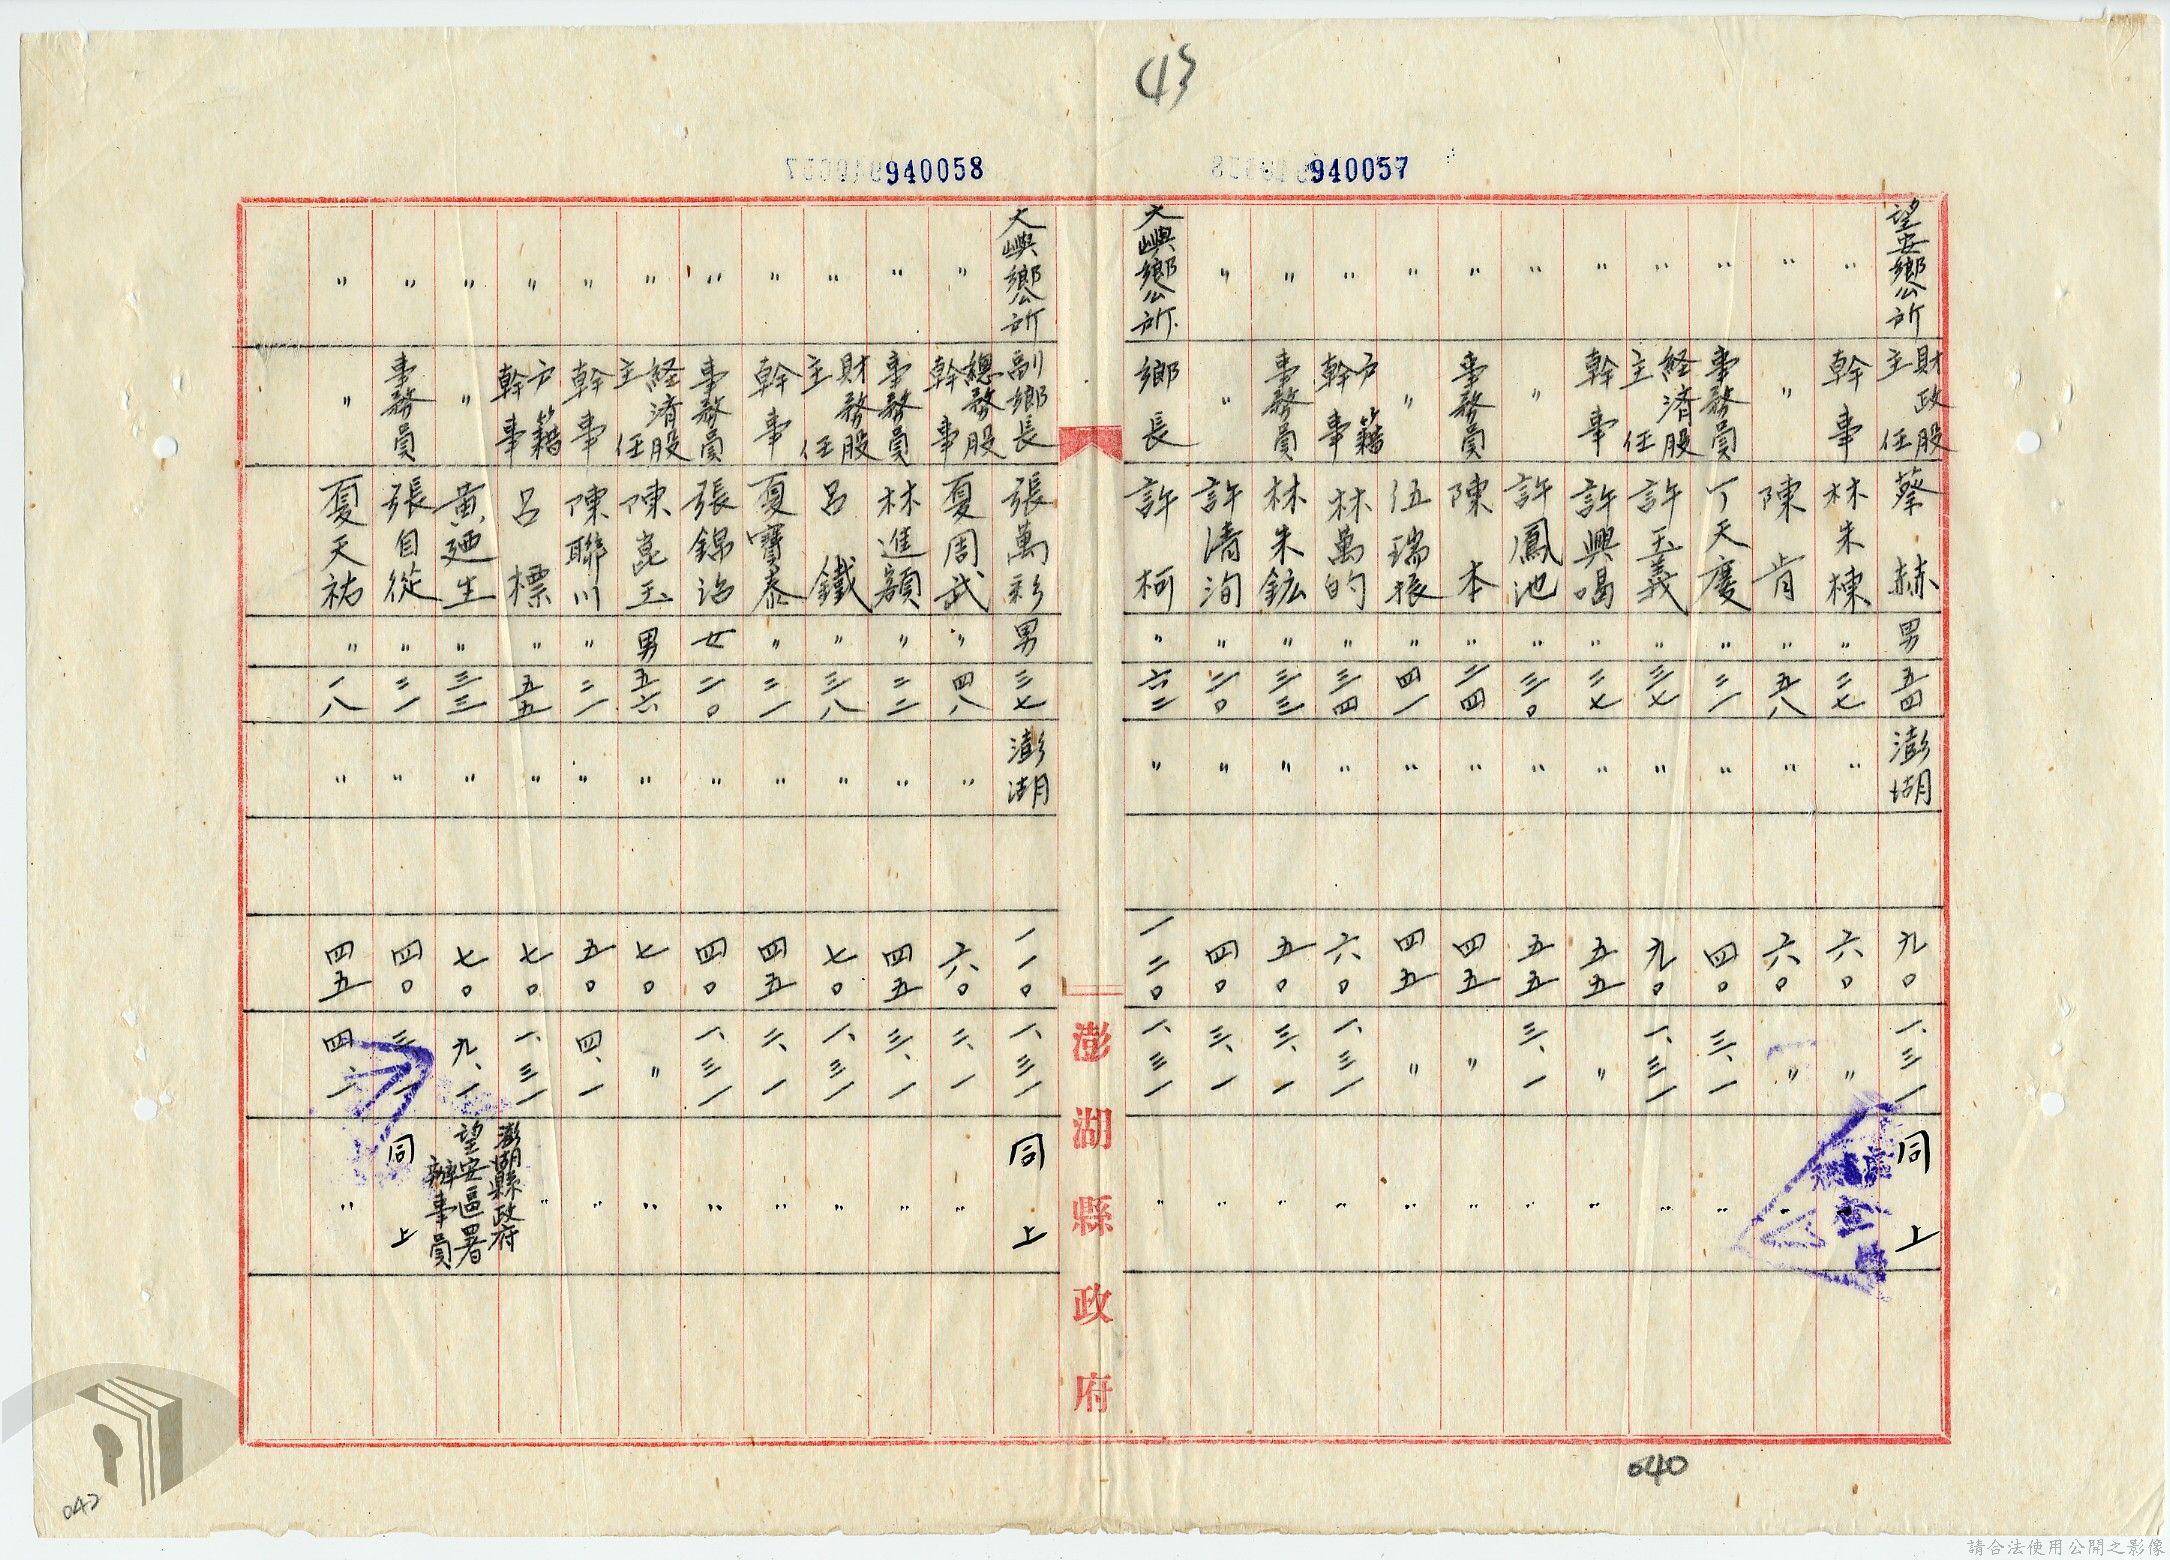 43
940057
940058
望安鄉公所 財政股主任 蔡赫 男 五四 澎湖 九〇 一、三一 同上
〃 幹事 林朱棟 〃 二七 〃 六〇 〃 〃
〃 〃 陳肯 〃 五八 〃 六〇 〃 〃
〃 事務員 丁天慶 〃 二一 〃 四〇 三、一 〃
〃 経済股主任 許玉義 〃 三七 〃 九〇 一、三一 〃
〃 幹事 許興喝 〃 二七 〃 五五 〃 〃
〃 〃 許鳳池 〃 三〇 〃 五五 三、一 〃
〃 事務員 陳本 〃 二四 〃 四五 〃 〃
〃 〃 伍瑞振 〃 四一 〃 四五 〃 〃
〃 戶籍幹事 林萬的 〃 三四 〃 六〇 一、三一 〃
〃 事務員 林朱鉱 〃 三三 〃 五〇 三、一 〃
〃 〃 許清洵 〃 二〇 〃 四〇 三、一 〃
大嶼鄉公所 鄉長 許柯 〃 六二 〃 一二〇 一、三一 〃
澎湖縣政府
大嶼鄉公所 副鄉長 張萬彩 男 三七 澎湖 一一〇 一、三一 同上
〃 總務股幹事 夏周武 〃 四八 〃 六〇 二、一 〃
〃 事務員 林進額 〃 二二 〃 四五 三、一 〃
〃 財務股主任 呂鐵 〃 三八 〃 七〇 一、三一 〃
〃 幹事 夏寶泰 〃 二一 〃 四五 二、一 〃
〃 事務員 張錦治 女 二〇 〃 四〇 一、三一 〃
〃 経済股主任 陳崑玉 男 五六 〃 七〇 〃 〃
〃 幹事 陳聯川 〃 二一 〃 五〇 四、一 〃
〃 戶籍幹事 呂標 〃 五五 〃 七〇 一、三一 〃
〃 〃 黃廼生 〃 三三 〃 七〇 九、一 澎湖縣政府望安區署辦事員
〃 事務員 張自從 〃 二一 〃 四〇 三、一 同上
〃 〃 夏天祐 〃 一八 〃 四五 四、一 〃
040
042
請合法使用公開之影像